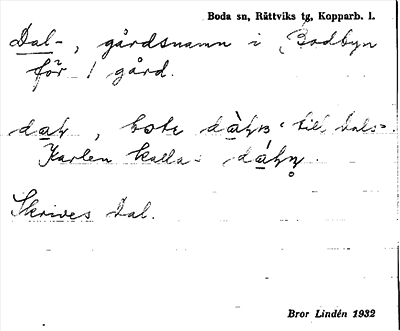 Boda sn, Rättviks tg, Kopparb. l.
Dal-, gårdsnamn i Bodbyn
för 1 gård.
till Dals-
Karlen kalla
Skrives Dal.
Bror Lindén 1932